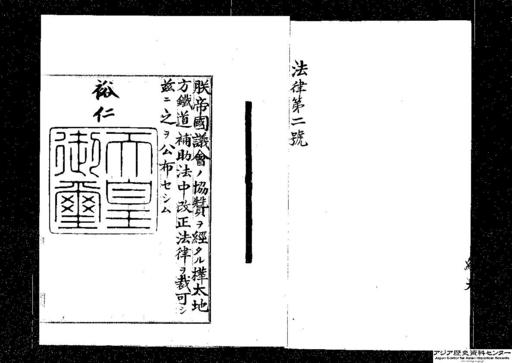 法律第二號
朕帝國議會ノ協贊ヲ經タル樺太地
方鐵道補助法中改正法律ヲ裁可シ
茲ニ之ヲ公布セシム
裕仁
天皇
御璽
アジア歴史資料センター
Japan Center for Asian Historical Records